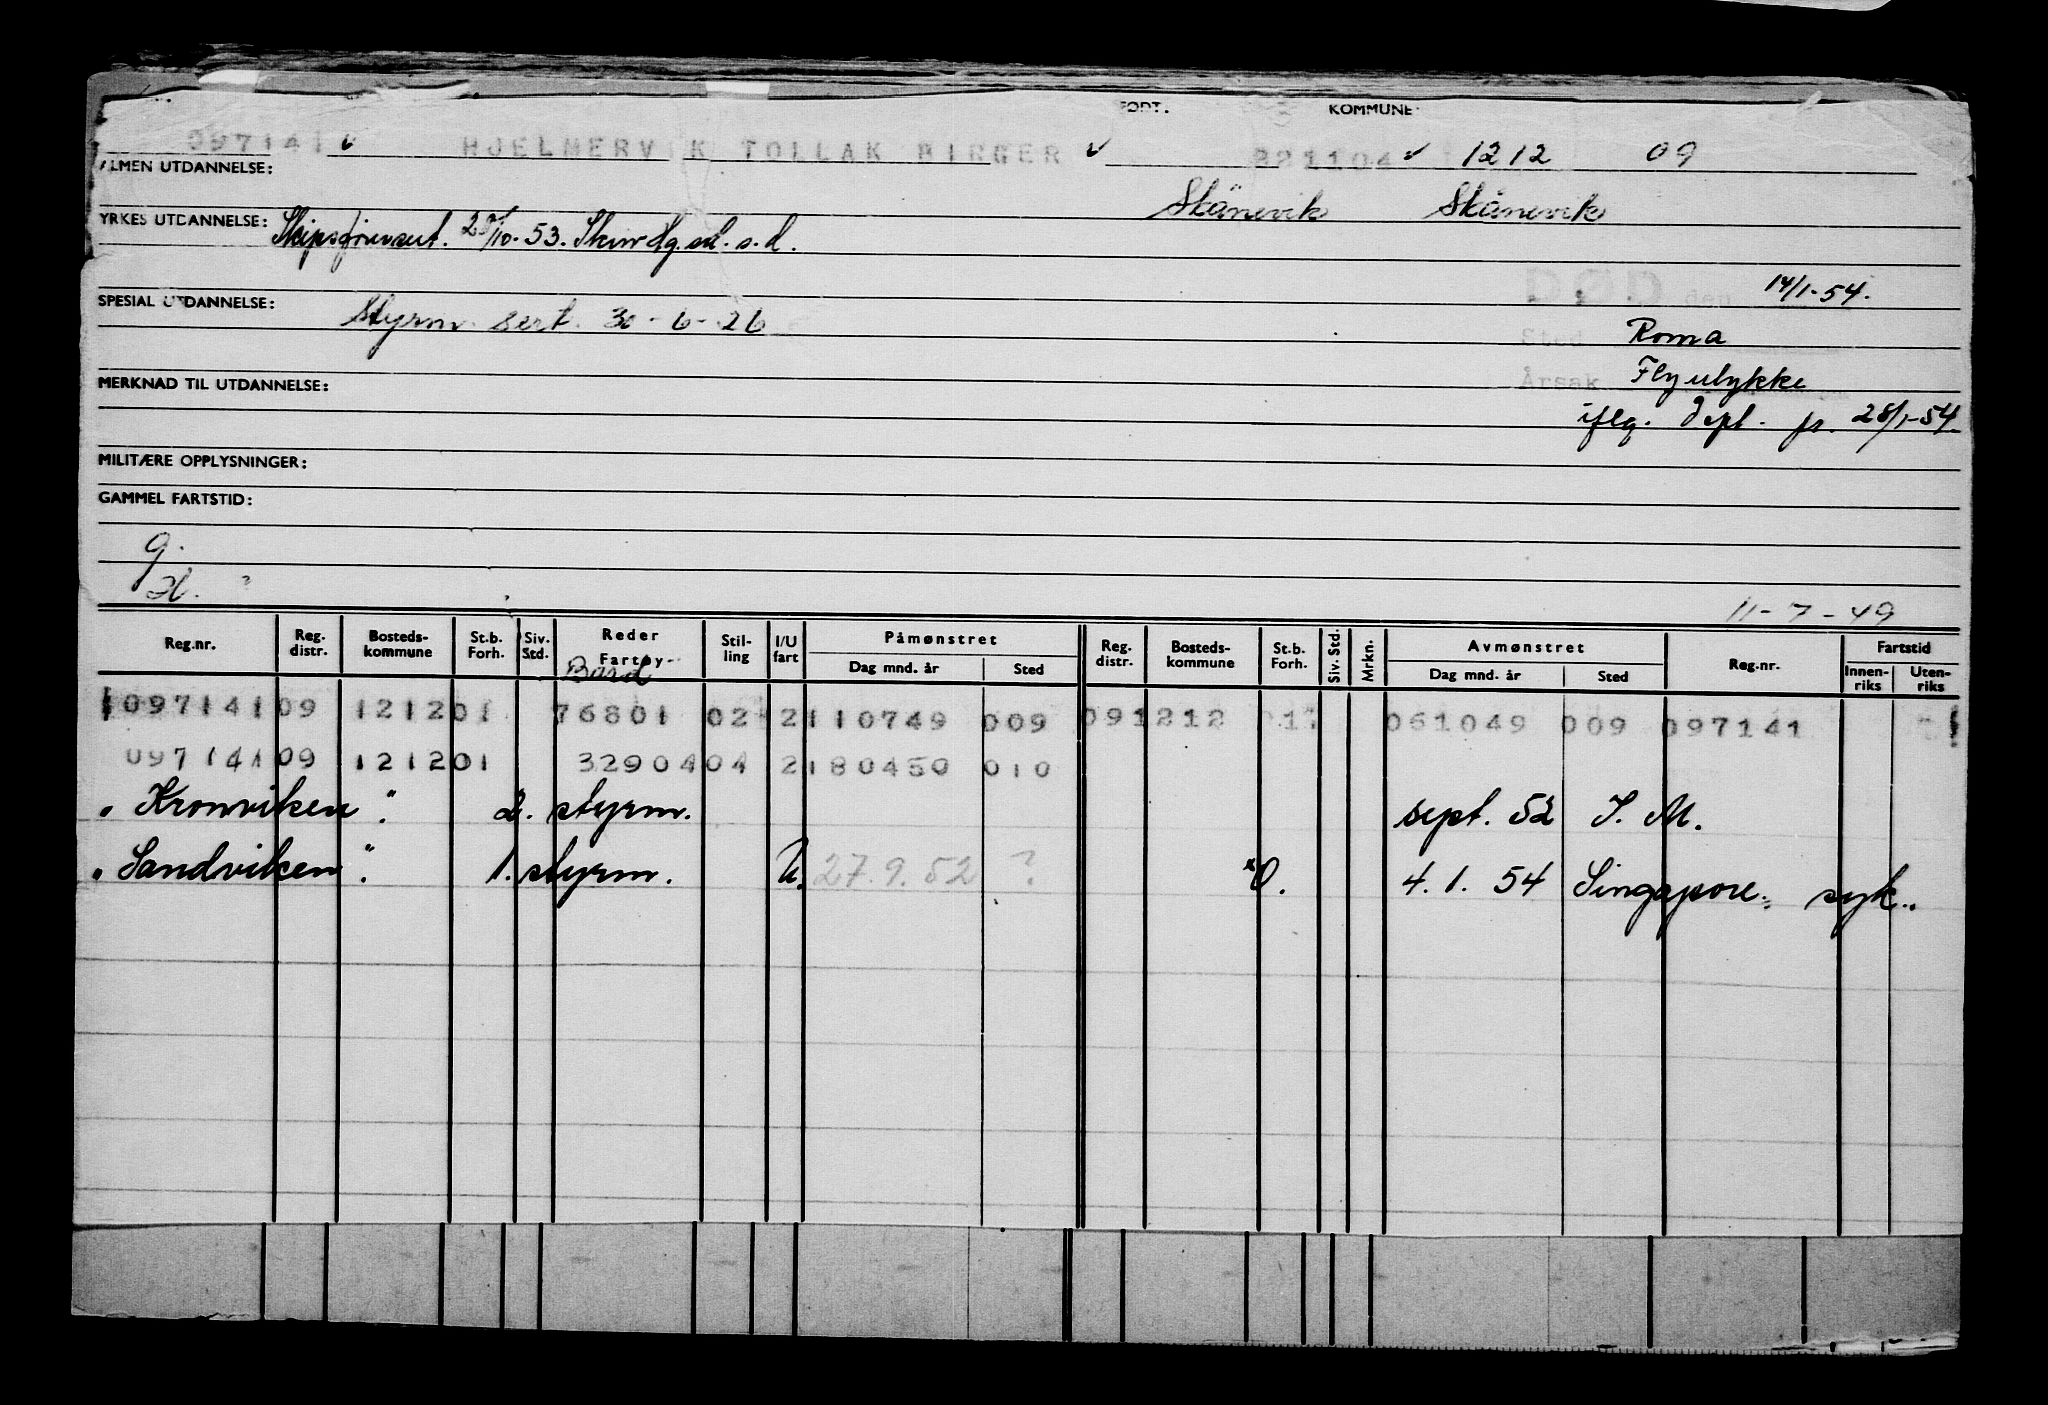 FØDT. KOMMUNE
097141 HJELMERVIK TOLLAK BIRGER 221104 1212 09
ALMEN UTDANNELSE:
Skånevik Skånevik
YRKES UTDANNELSE: 53. s.d.
DØD den 14/1-54.
SPESIAL UTDANNELSE: Styrm. sert. 30-6-26
Sted Roma
MERKNAD TIL UTDANNELSE: Årsak Flyulykke
iflg. Dept. fr. 28/1-54.
MILITÆRE OPPLYSNINGER:
GAMMEL FARTSTID:
g.
H.
11-7-49
Reg.nr. Reg. distr. Bosteds-kommune St.b. Forh. Siv. Std. Reder Fartøy Stil-ling I/U fart Påmønstret Dag mnd. år Sted Reg. distr. Bosteds-kommune St.b. Forh. Siv. Std. Mrkn. Avmønstret Dag mnd. år Sted Reg.nr. Fartstid Innen-riks Uten-riks
097141 09 1212 01 76801 02 2 110749 009 09 1212 01 061049 009 097141
097141 09 1212 01 32904 04 2 180450 010
"Kronviken" 2. styrm. sept. 52 I. M.
"Sandviken" 1. styrm. U. 27.9.52 ? O. 4.1.54 Singapore. syk.